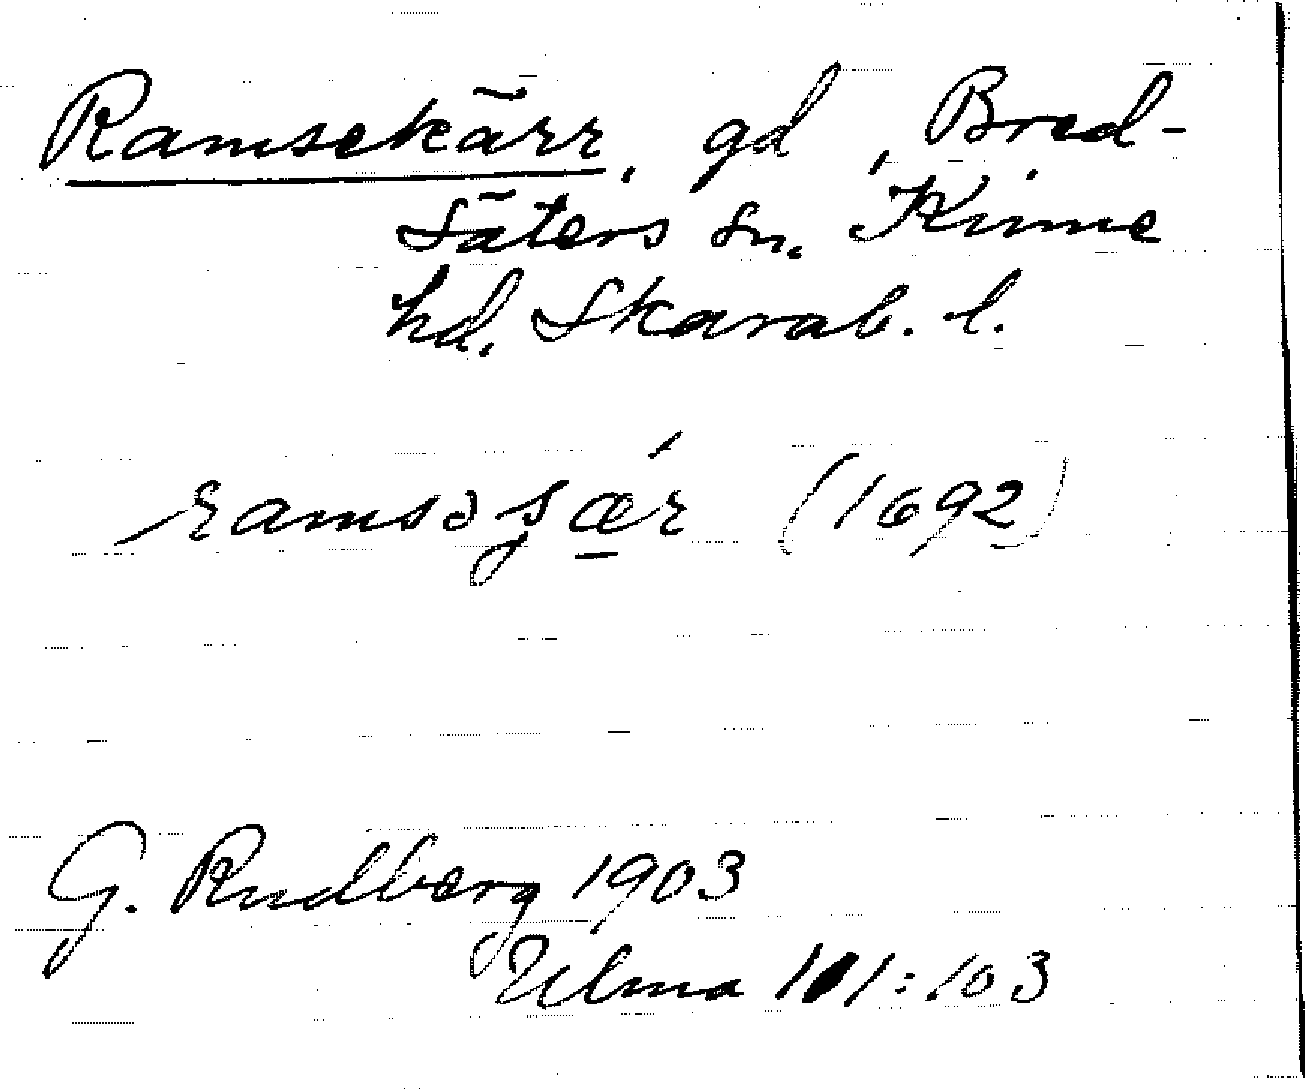 Ramsekärr, gd, Bred-
säters sn. Kinne
hd. Skarab. l.
ramsəʂær (1692)
G. Rudberg 1903
Ulma 101:103